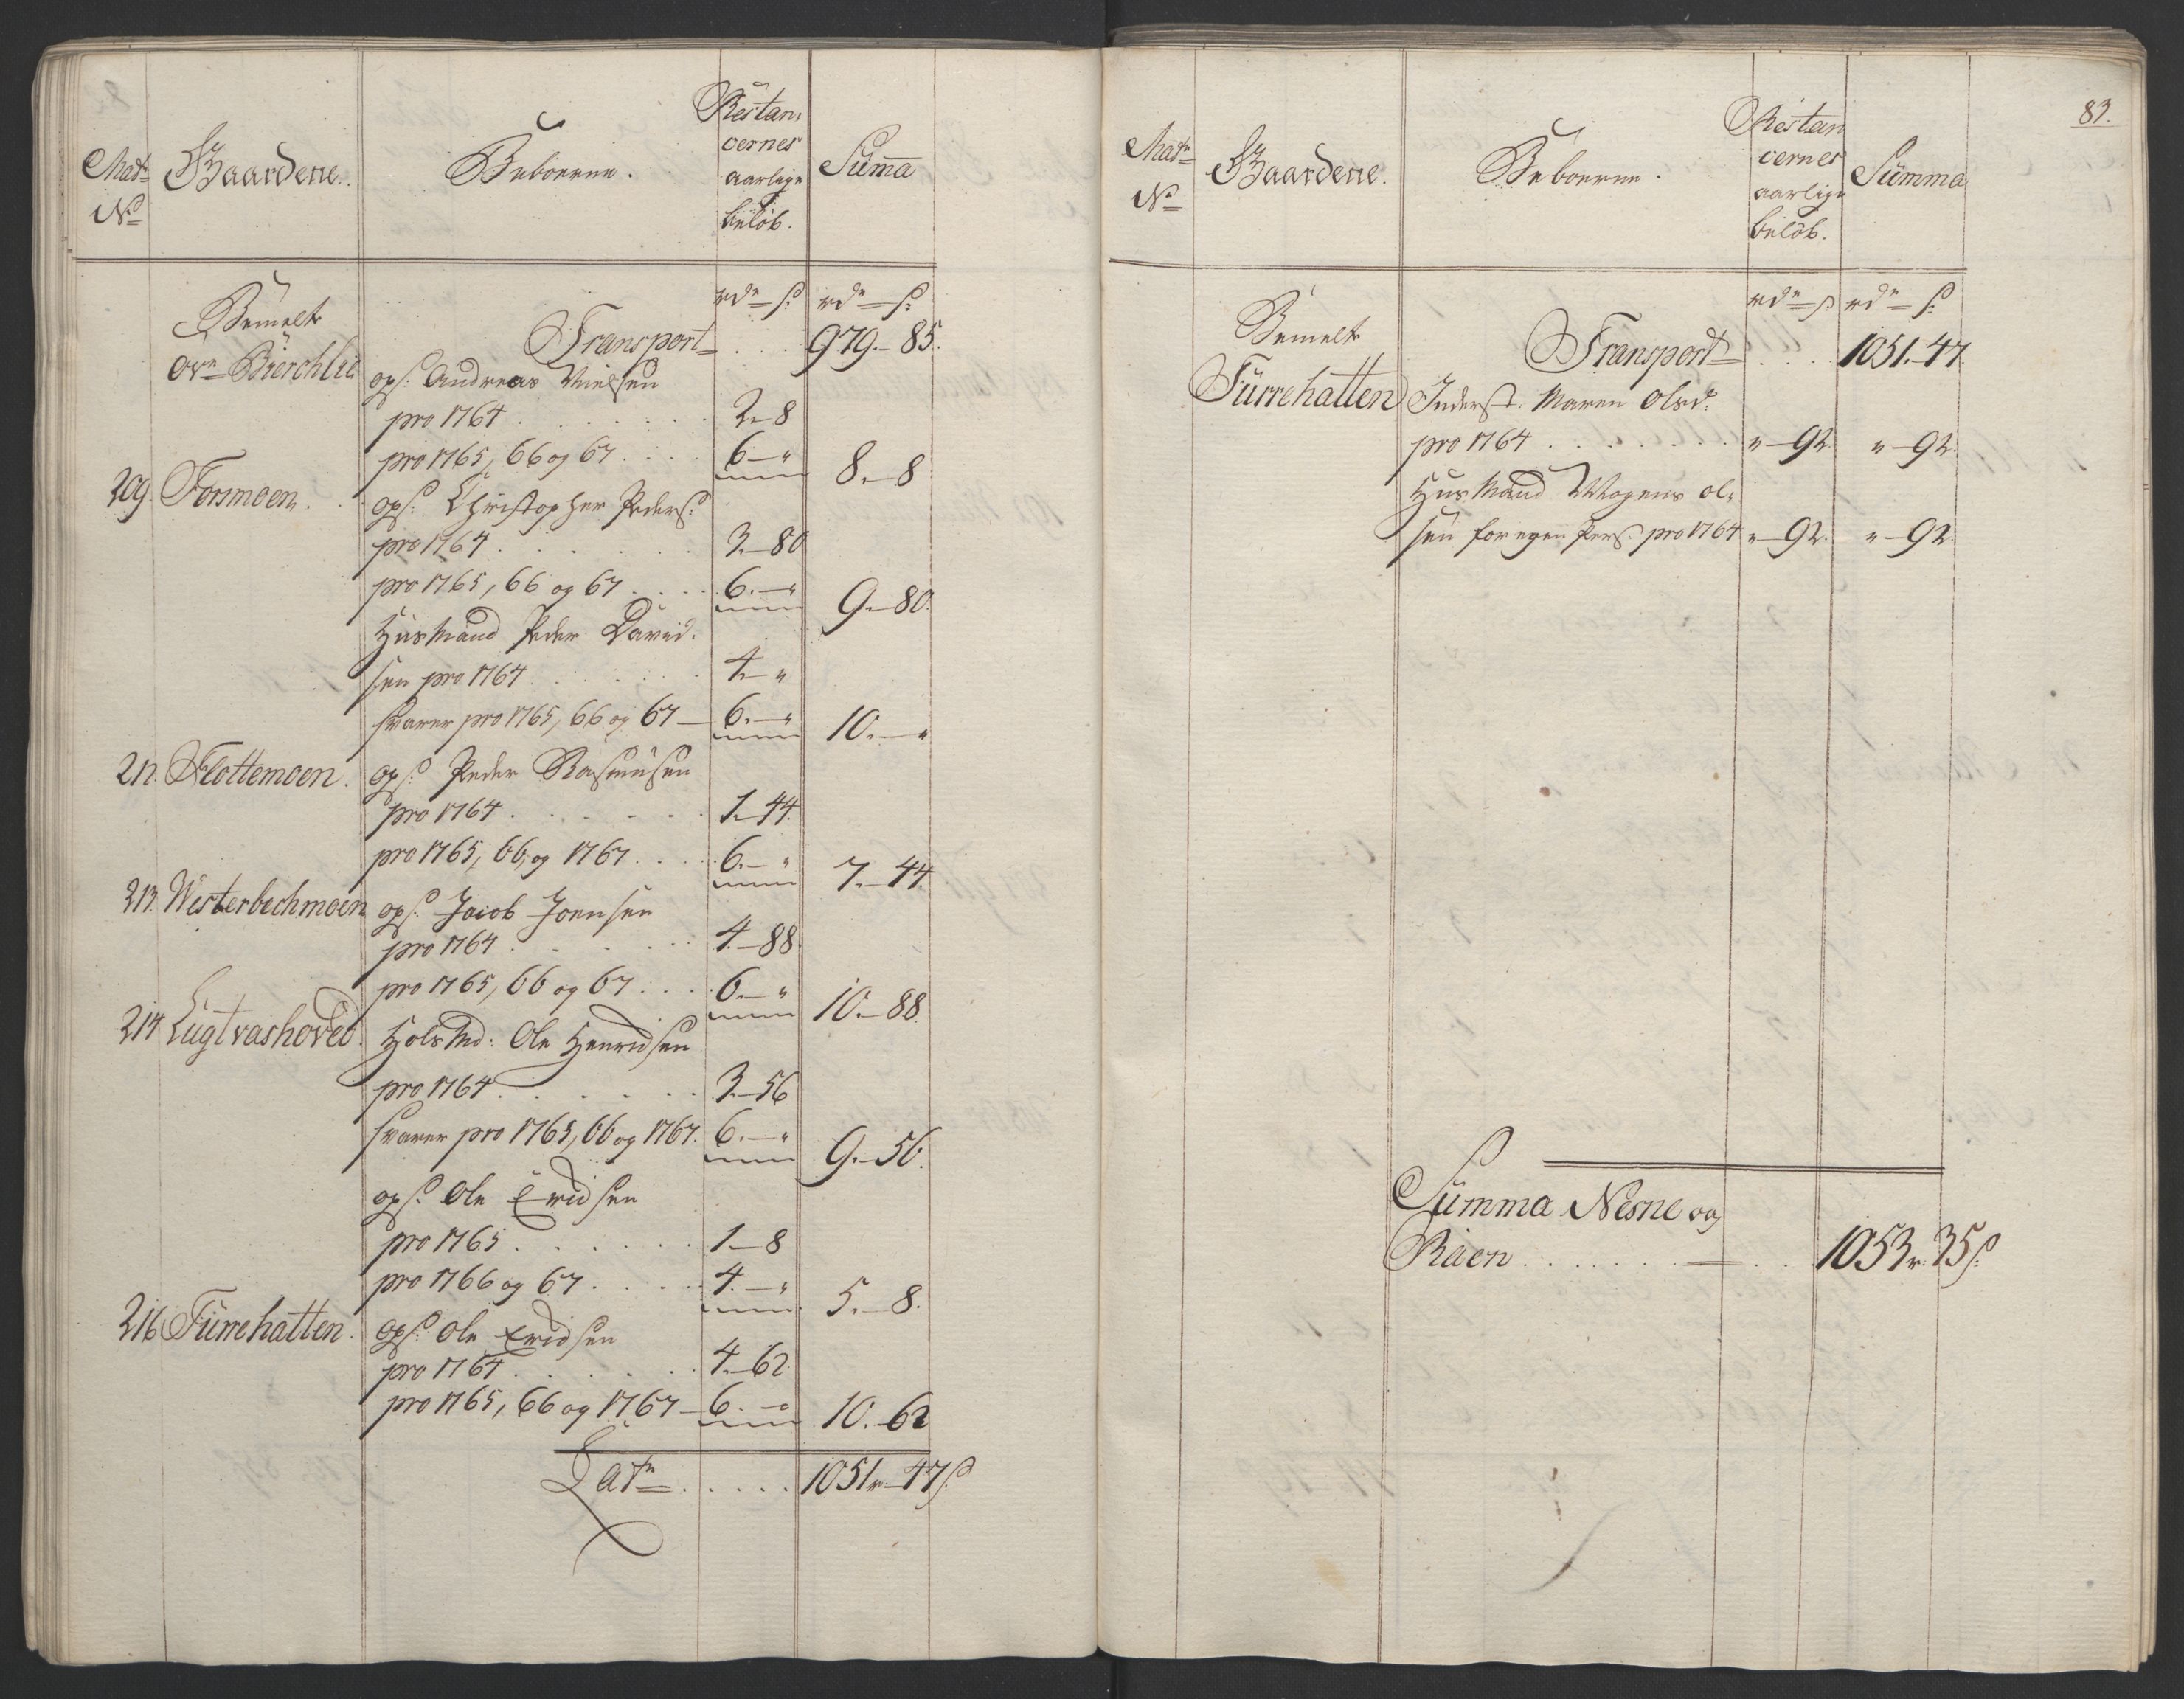 Matr
No
Gaardene.
Beboerne.
Restan-
cernes
aarlige
beløb.
Suma
rdr ß rdr ß
Bemelte
Ovr Bierchlie
Transport . . 979.-85.
ops. Andreas Nielsen
pro 1764 . . . . . . 2-8
pro 1765, 66 og 67 . . . . 6-" 8.-8
209. Forsmoen. ops. Christopher Peders:
pro 1764 . . . . . . 3-80
pro 1765, 66 og 67 . . . . 6.-" 9-80.
Husmand Peder David-
sen pro 1764 . . . . . . 4-"
svarer pro 1765, 66 og 67 - 6.-" 10.-"
212. Flottemoen. ops. Peder Rasmusen
pro 1764 . . . . . . 1-44.
pro 1765, 66, og 1767 . . . . 6.-" 7.-44.
213. Westerbechmoen ops. Jacob Joensen
pro 1764 . . . . . . 4-88.
pro 1765, 66 og 67 . . . . 6.-" 10.-88.
214 Lugtvashoved. Holsmd: Ole Henricksen
pro 1764 . . . . . . 3-56
svarer pro 1765, 66 og 1767. 6.-" 9.-56.
ops. Ole Ericksen
pro 1765 . . . . . . 1-8
pro 1766 og 67 . . . . 4.-" 5.-8.
216 Furrehatten. ops. Ole Ericksen
pro 1764 . . . . . . 4-62.
pro 1765, 66 og 1767 - 6.-" 10.-62
Latr . . . . . 1051r-47ß
83.
Matr
No
Gaardene.
Beboerne.
Restan
cernes
aarlige
beløb.
Summa
rdr ß rdr ß
Bemelte
Furrehatten
Transport . . . 1051.-47.
Inderst. Maren Olsd:
pro 1764 . . . . . . "-92. "-92.
Husmand Mogens Ol-
sen for egen Pers. pro 1764 "-92. "-92.
Summa Nesne og
Raen . . . . . . . . . 1053r.35ß